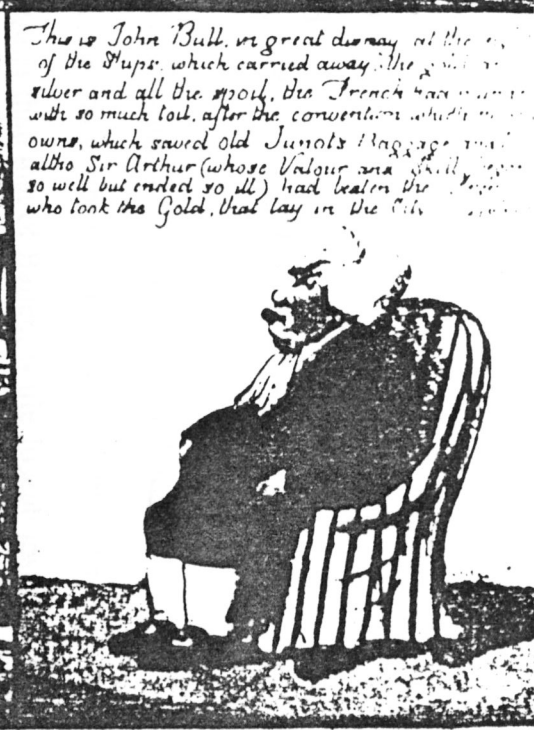 This is John Bull, in great dismay at the
of the Ships, which carried away the
silver and all the spoil, the French had
with so much toil, after the convention which
owns, which saved old Junots Baggage and
altho Sir Arthur (whose Valour and Skill began
so well but ended so ill) had beaten the
who took the Gold, that lay in the City